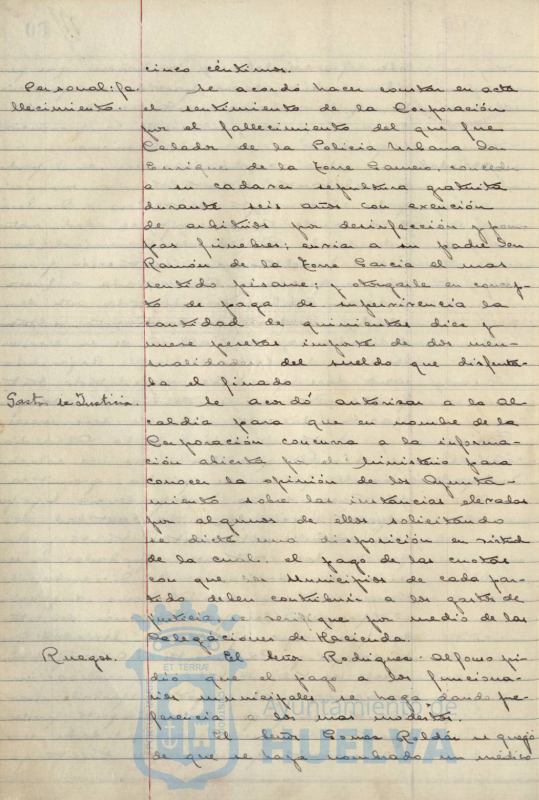 cinco céntimos.
Personal: fa- Se acordó hacer constar en acta
llecimiento. el sentimiento de la Corporación
por el fallecimiento del que fue
Celador de la Policía Urbana Don
Enrique de la Torre Gamero, conceder
a su cadaver sepultura gratuita
durante seis años con exención
de arbitrios por desinfección y pom-
pas fúnebres; enviar a su padre Don
Ramón de la Torre García el mas
sentido pésame; y otorgarle en concep-
to de paga de supervivencia la
cantidad de quinientas diez y
nueve pesetas importe de dos men-
sualidades del sueldo que disfruta-
ba el finado
Gastos de Justicia. Se acordó autorizar a la Al-
caldia para que en nombre de la
Corporación concurra a la informa-
ción abierta por el Ministerio para
conocer la opinión de los Ayunta-
mientos sobre las instancias elevadas
por algunos de ellos solicitando
se dicte una disposición en virtud
de la cual, el pago de las cuotas
con que los Municipios de cada par-
tido deben contribuir a los gastos de
justicia, se verifique por medio de las
Delegaciones de Hacienda.
Ruegos. El Señor Rodriguez Alfonso pi-
dió que el pago a los funciona-
rios municipales se haga dando pre-
ferencia a los mas modestos.
El Señor Gomez Roldán se quejó
de que se haya nombrado un médico
ET TERRÆ
Ayuntamiento de
HUELVA